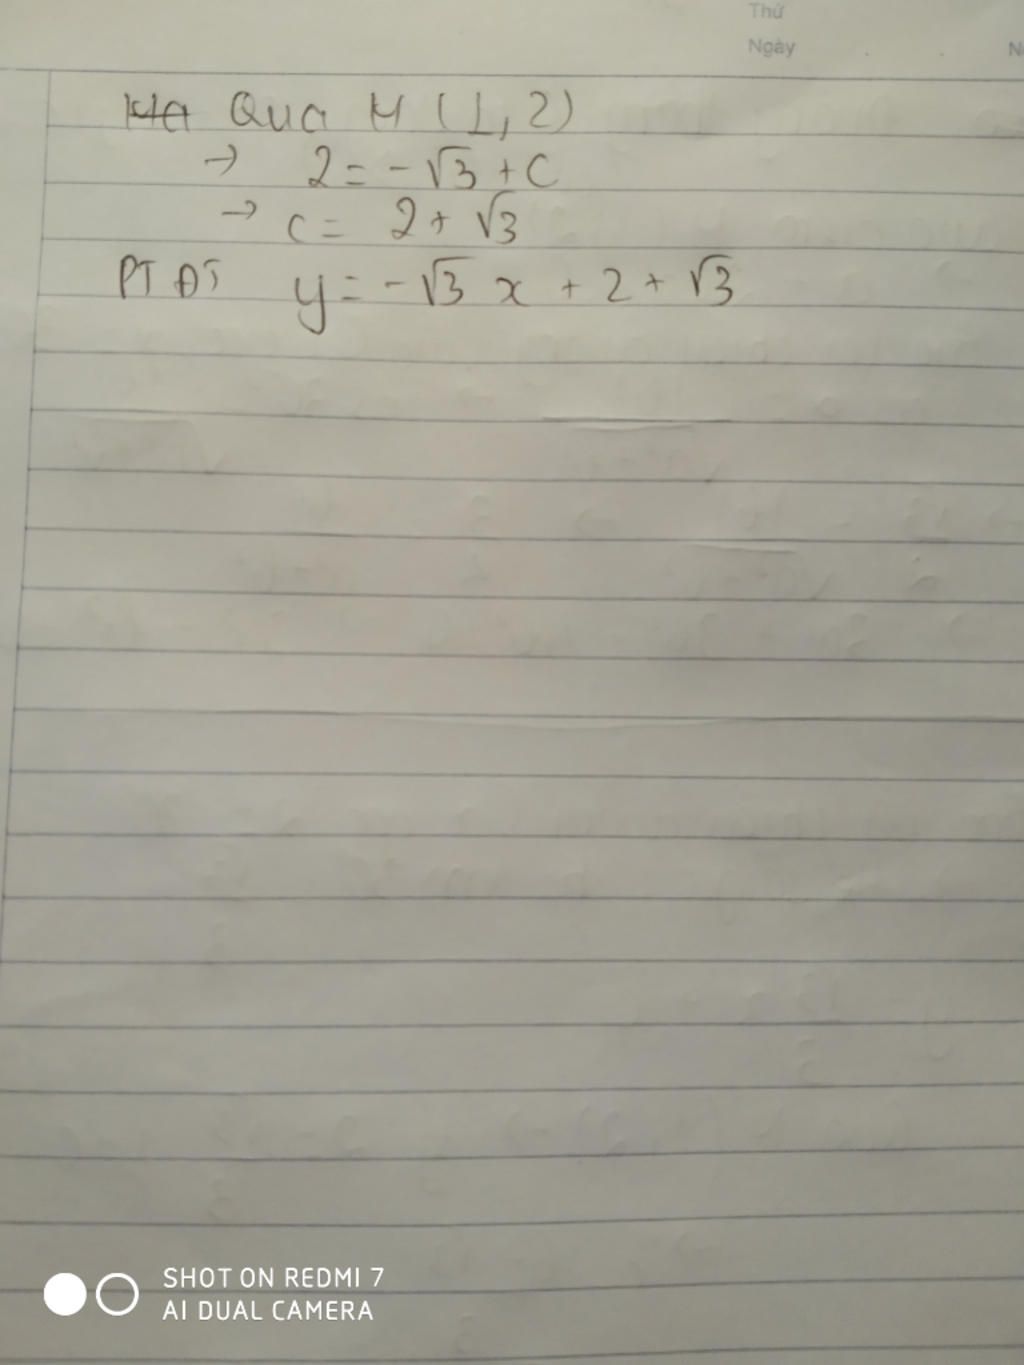 Thứ
Ngày
Qua M (1, 2)
→ 2 = -√3 + C
→ c = 2 + √3
PT ĐT y = -√3 x + 2 + √3
SHOT ON REDMI 7
AI DUAL CAMERA